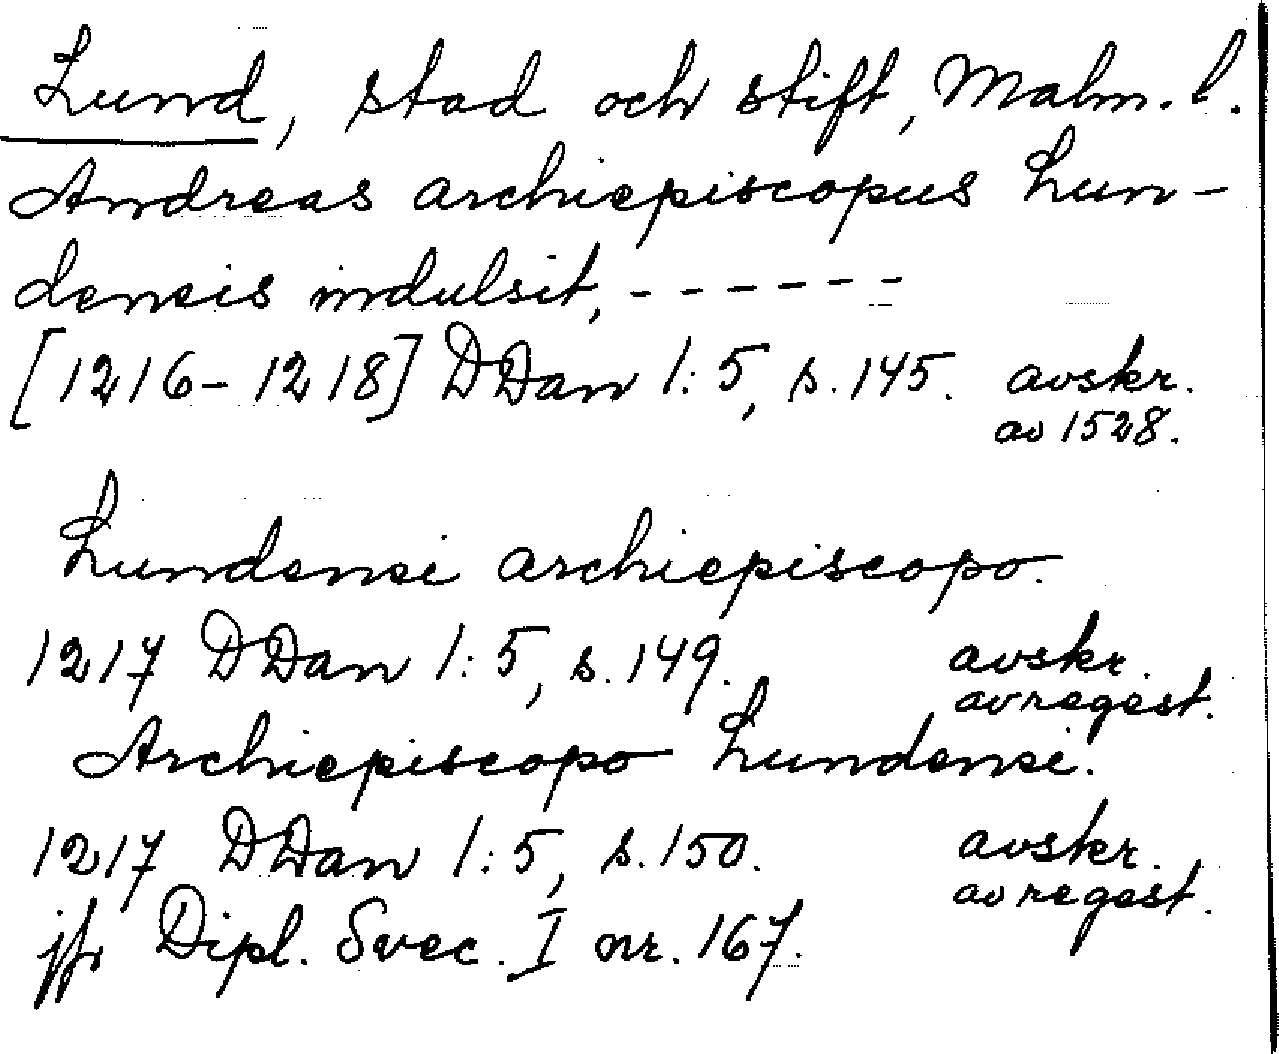 Lund, stad och stift, Malm. l.
Andreas archiepiscopus Lun-
densis indulsit, - - - - - -
[1216-1218] DDan 1:5, s. 145. avskr.
av 1528.
Lundensi archiepiscopo.
1217 DDan 1:5, s. 149. avskr.
av regest.
Archiepiscopo Lundensi.
1217 DDan 1:5, s. 150. avskr.
av regest.
jfr Dipl. Svec. I nr. 167.